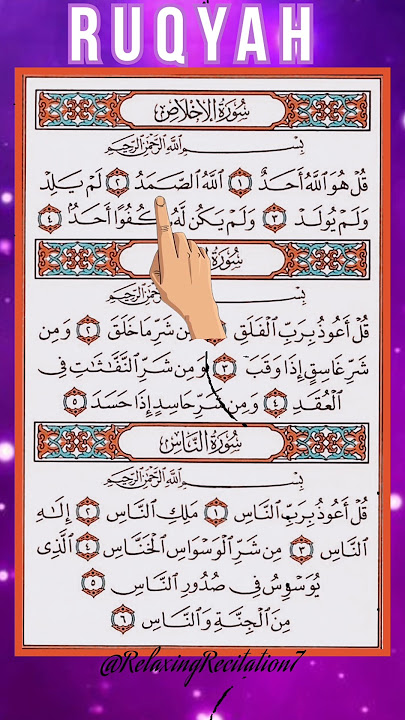 RUQYAH
سُورَةُ الإِخْلَاصِ
بِسْمِ ٱللَّهِ ٱلرَّحْمَٰنِ ٱلرَّحِيمِ
قُلْ هُوَ ٱللَّهُ أَحَدٌ ١ ٱللَّهُ ٱلصَّمَدُ ٢ لَمْ يَلِدْ
وَلَمْ يُولَدْ ٣ وَلَمْ يَكُن لَّهُ كُفُوًا أَحَدٌ ٤
سُورَةُ
بِسْمِ ٱللَّهِ ٱلرَّحْمَٰنِ ٱلرَّحِيمِ
قُلْ أَعُوذُ بِرَبِّ ٱلْفَلَقِ مِن شَرِّ مَا خَلَقَ ٢ وَمِن
شَرِّ غَاسِقٍ إِذَا وَقَبَ ٣ وَمِن شَرِّ ٱلنَّفَّٰثَٰتِ فِى
ٱلْعُقَدِ ٤ وَمِن شَرِّ حَاسِدٍ إِذَا حَسَدَ ٥
سُورَةُ النَّاسِ
بِسْمِ ٱللَّهِ ٱلرَّحْمَٰنِ ٱلرَّحِيمِ
قُلْ أَعُوذُ بِرَبِّ ٱلنَّاسِ ١ مَلِكِ ٱلنَّاسِ ٢ إِلَٰهِ
ٱلنَّاسِ ٣ مِن شَرِّ ٱلْوَسْوَاسِ ٱلْخَنَّاسِ ٤ ٱلَّذِى
يُوَسْوِسُ فِى صُدُورِ ٱلنَّاسِ ٥
مِنَ ٱلْجِنَّةِ وَٱلنَّاسِ ٦
@RelaxingRecitation7